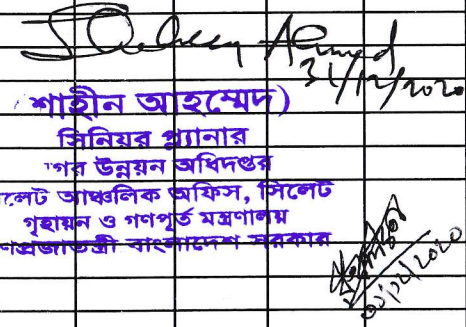 Shaheen Ahmed
31/12/2020
শাহীন আহম্মেদ)
সিনিয়র প্ল্যানার
গর উন্নয়ন অধিদপ্তর
লেট আঞ্চলিক অফিস, সিলেট
গৃহায়ন ও গণপূর্ত মন্ত্রণালয়
ণপ্রজাতন্ত্রী বাংলাদেশ সরকার